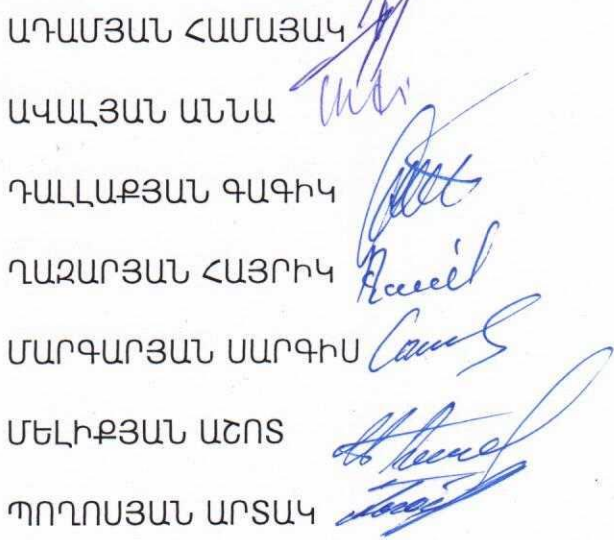 ԱԴԱՄՅԱՆ ՀԱՄԱՅԱԿ
ԱՎԱԼՅԱՆ ԱՆՆԱ
ԴԱԼԼԱՔՅԱՆ ԳԱԳԻԿ
ՂԱԶԱՐՅԱՆ ՀԱՅՐԻԿ
ՄԱՐԳԱՐՅԱՆ ՍԱՐԳԻՍ
ՄԵԼԻՔՅԱՆ ԱՇՈՏ
ՊՈՂՈՍՅԱՆ ԱՐՏԱԿ